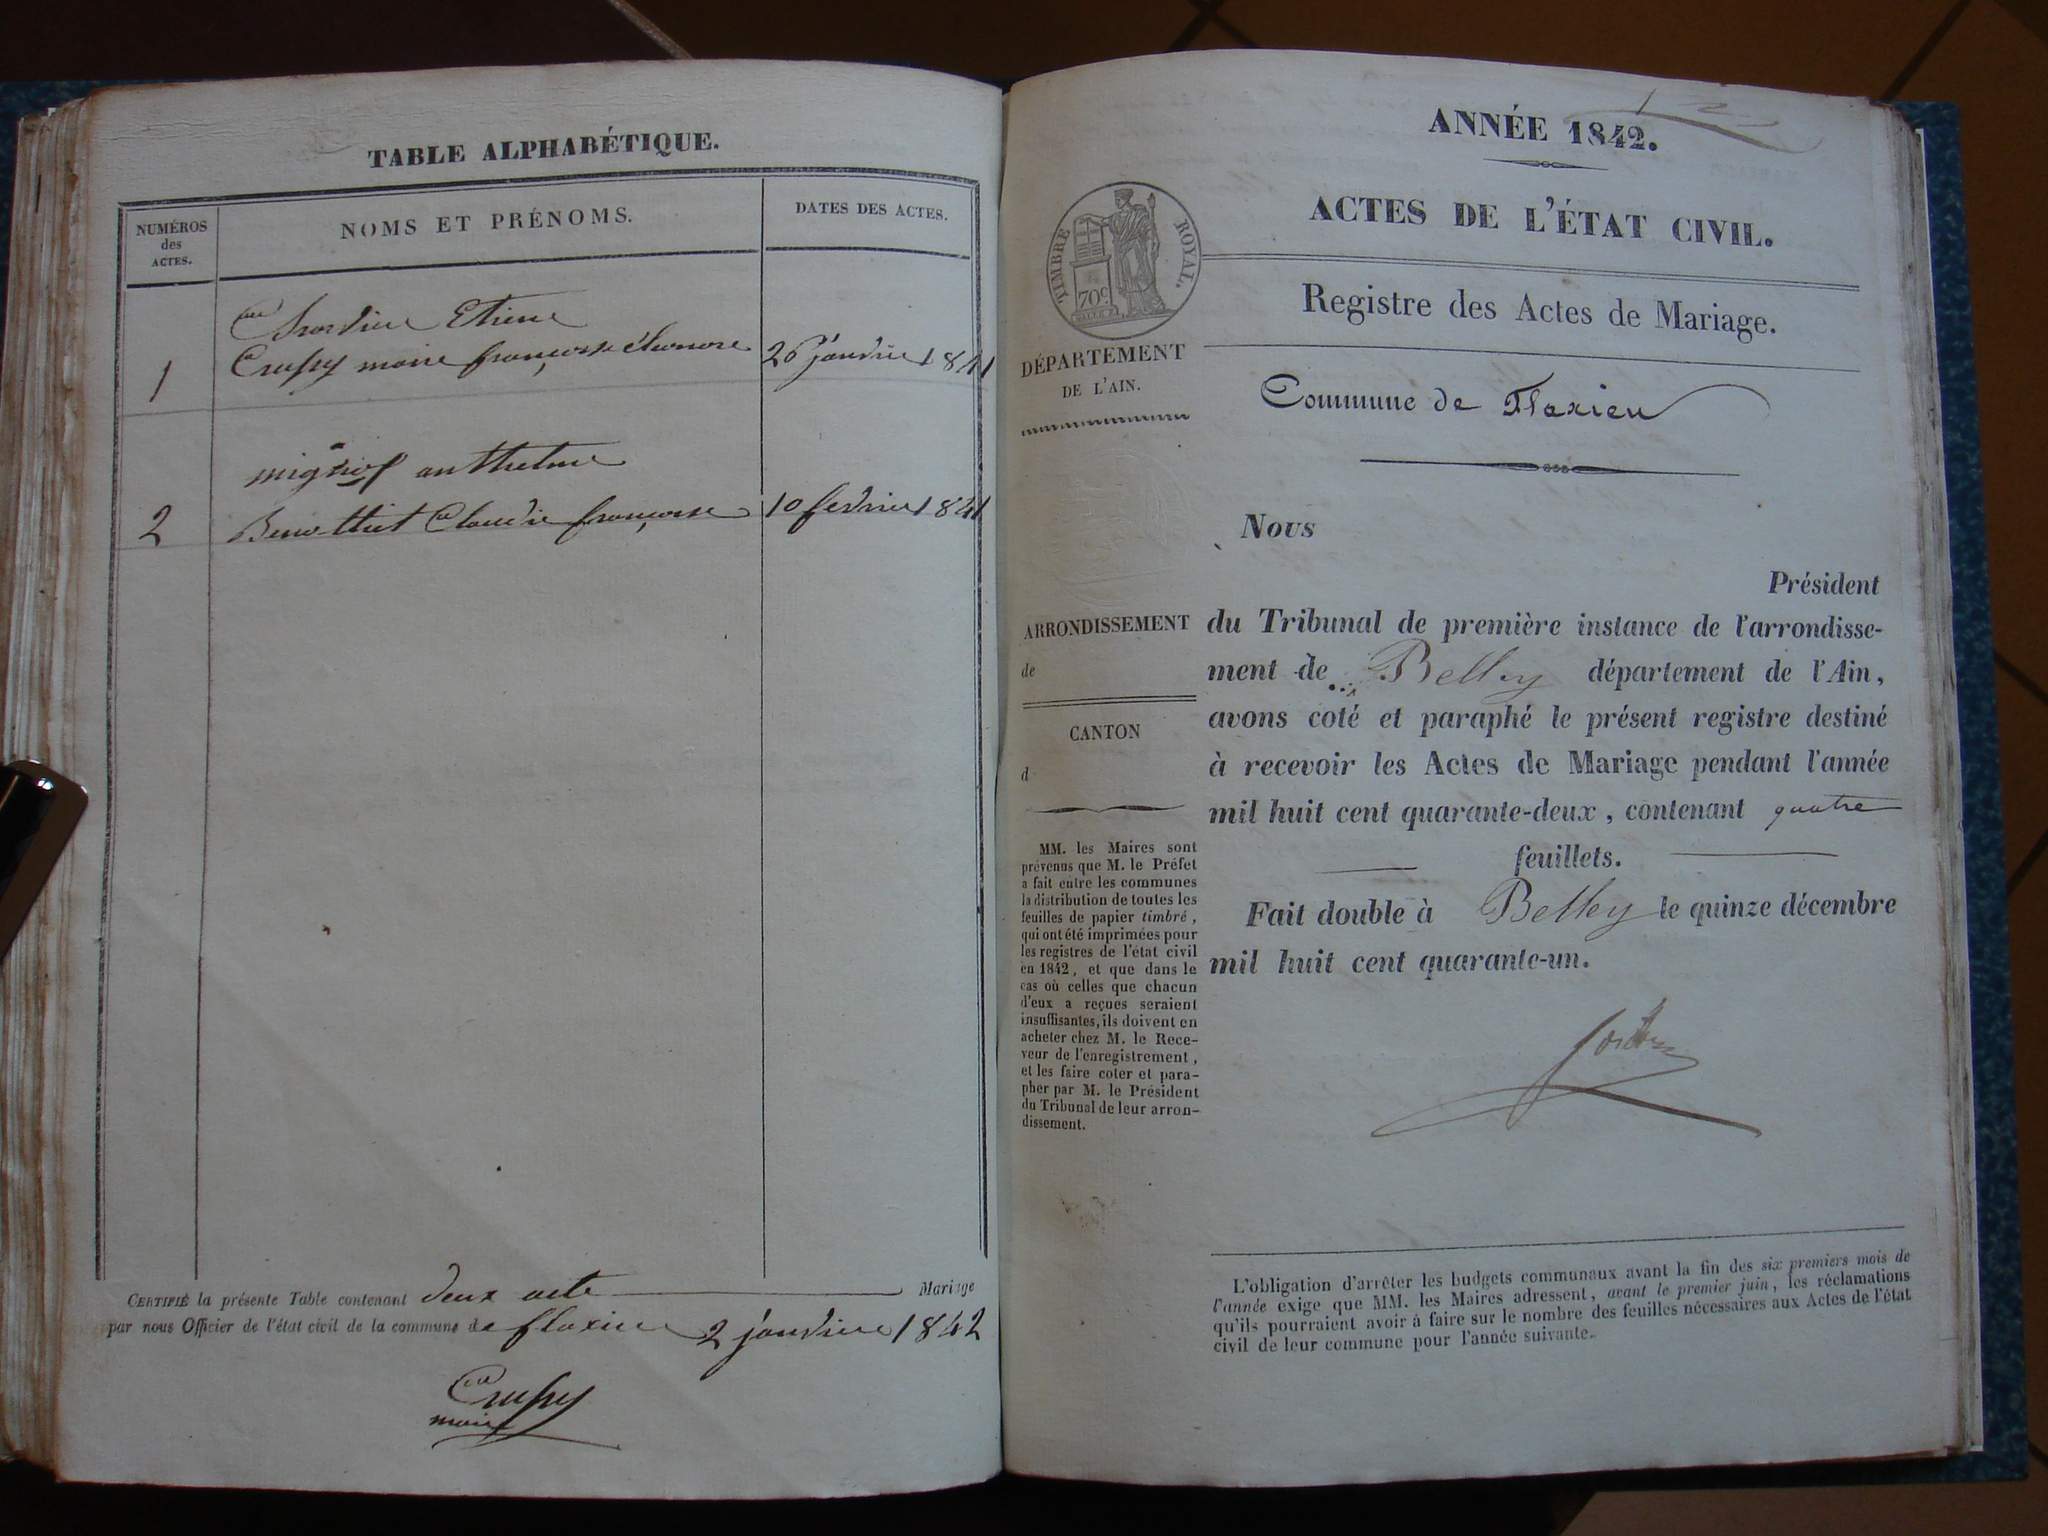 TABLE ALPHABÉTIQUE.
NUMÉROS
des
ACTES.
NOMS ET PRÉNOMS.
DATES DES ACTES.
Etiene
1
marie françoise éléonore
26 janvier 1841
anthelme
2
Claudie françoise
10 fevrier 1841
CERTIFIÉ la présente Table contenant deux acte Mariage
par nous Officier de l'état civil de la commune de flaxieu 2 janvier 1842
Crussy
maire
ANNÉE 1842.
ACTES DE L'ÉTAT CIVIL.
TIMBRE ROYAL.
70c
Registre des Actes de Mariage.
DÉPARTEMENT
DE L'AIN.
Commune de Flaxieu
Nous
Président
ARRONDISSEMENT
de
CANTON
d
du Tribunal de première instance de l'arrondisse-
ment de Belley département de l'Ain,
avons coté et paraphé le présent registre destiné
à recevoir les Actes de Mariage pendant l'année
mil huit cent quarante-deux, contenant quatre
feuillets.
Fait double à Belley le quinze décembre
mil huit cent quarante-un.
MM. les Maires sont
prévenus que M. le Préfet
a fait entre les communes
la distribution de toutes les
feuilles de papier timbré,
qui ont été imprimées pour
les registres de l'état civil
en 1842, et que dans le
cas où celles que chacun
d'eux a reçues seraient
insuffisantes, ils doivent en
acheter chez M. le Rece-
veur de l'enregistrement,
et les faire coter et para-
pher par M. le Président
du Tribunal de leur arron-
dissement.
L'obligation d'arrêter les budgets communaux avant la fin des six premiers mois de
l'année exige que MM. les Maires adressent, avant le premier juin, les réclamations
qu'ils pourraient avoir à faire sur le nombre des feuilles nécessaires aux Actes de l'état
civil de leur commune pour l'année suivante.